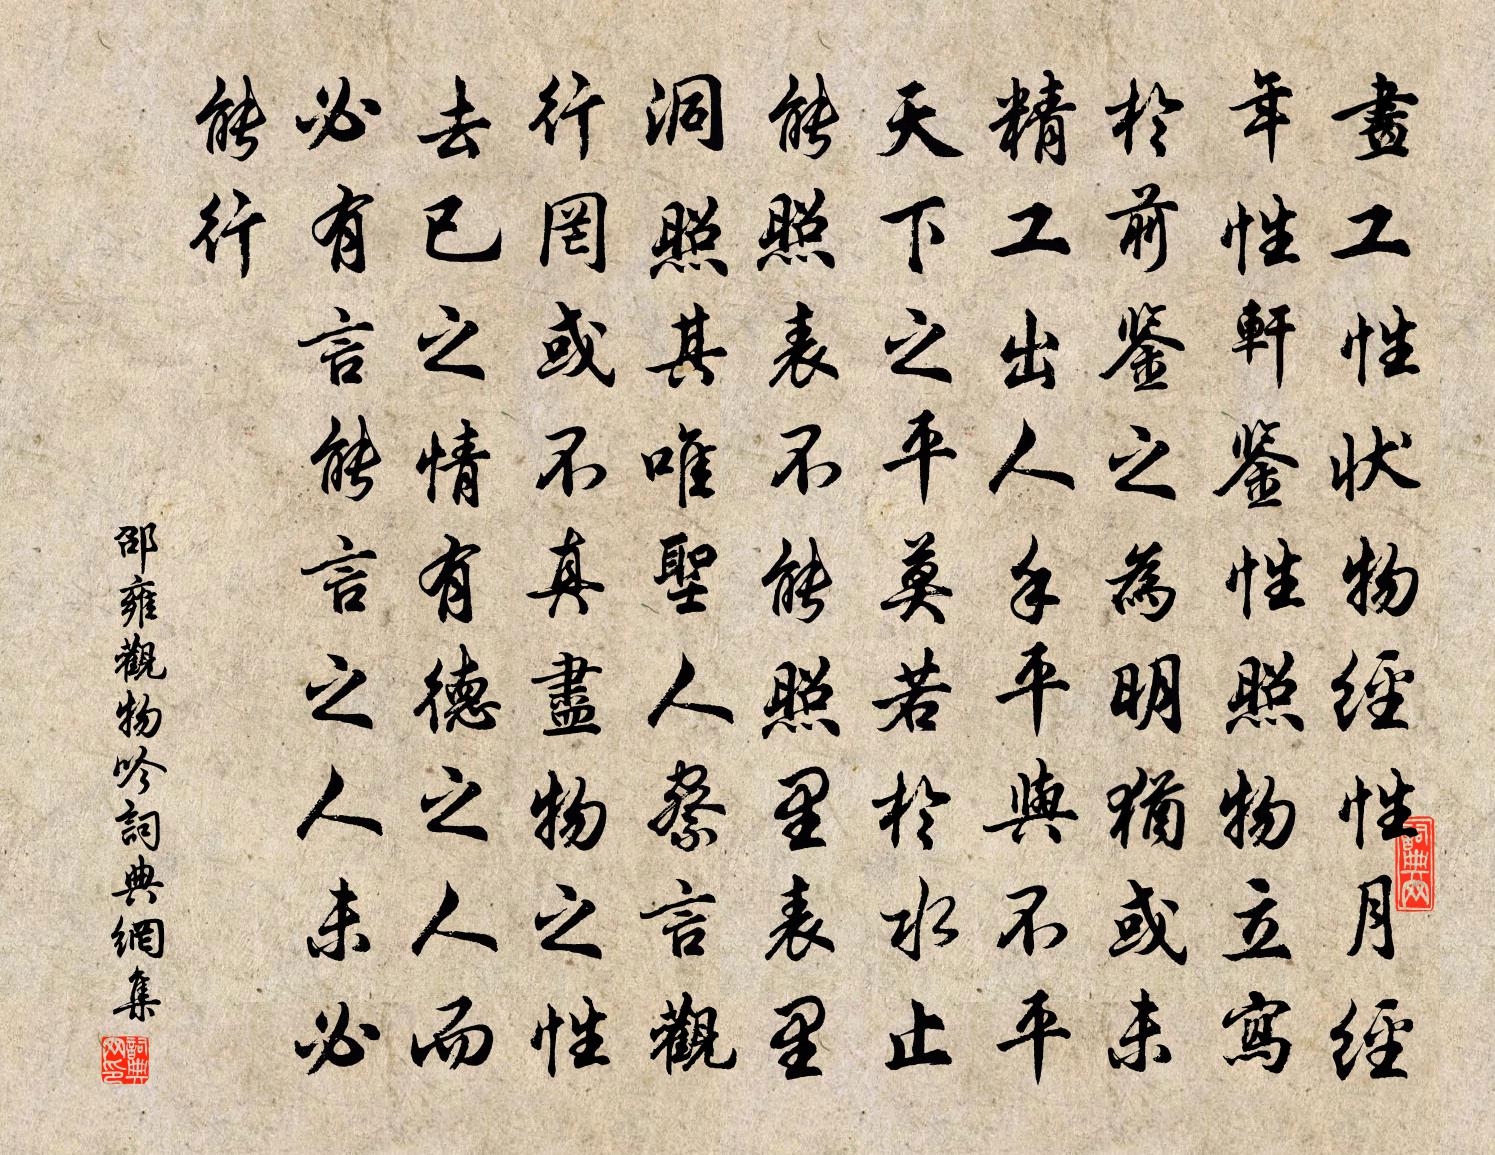 畫工性状物經性月經
年性軒鉴性照物立寫
於前鉴之為明猶或未
精工出人手平與不平
天下之平莫若於水止
能照表不能照里表里
洞照其唯聖人察言觀
行罔或不真盡物之性
去已之情有德之人而
必有言能言之人未必
能行
邵雍觀物吟詞典網集
詞典网
詞典网印